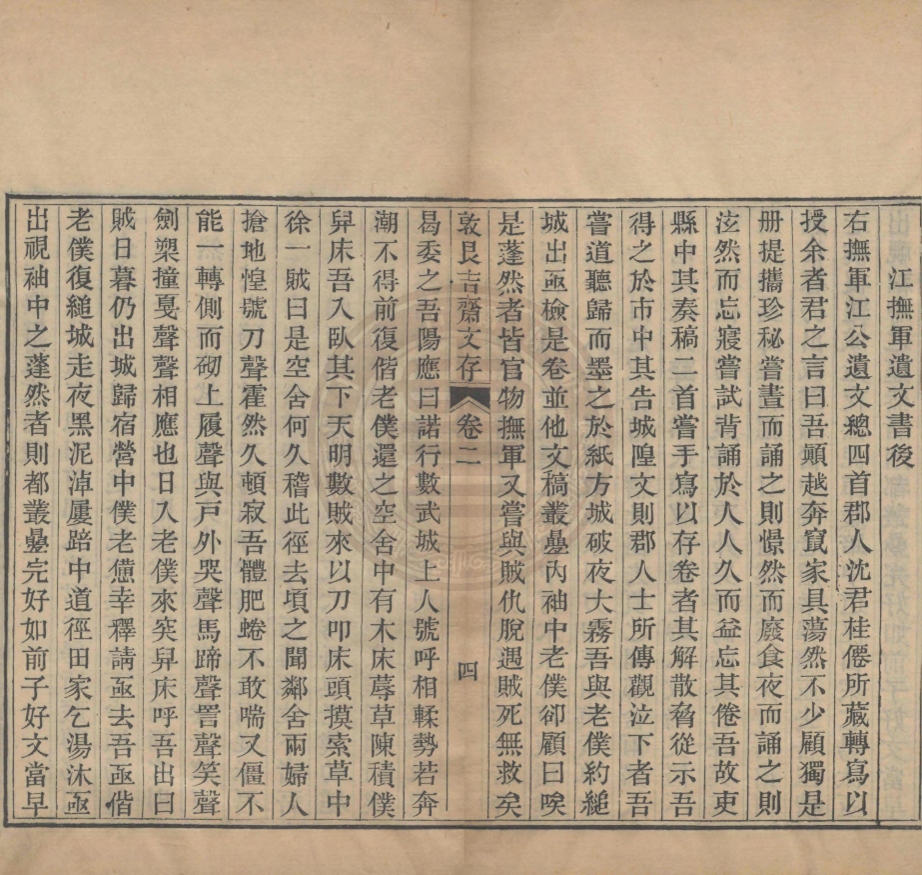 江撫軍遺文書後
右撫軍江公遺文總四首郡人沈君桂僊所藏轉寫以
授余者君之言曰吾顚越奔竄家具蕩然不少顧獨是
册提攜珍秘嘗晝而誦之則憬然而廢食夜而誦之則
泫然而忘寢嘗試背誦於人人久而益忘其倦吾故吏
縣中其奏稿二首嘗手寫以存卷者其解散脅從示吾
得之於市中其告城隍文則郡人士所傳觀泣下者吾
嘗道聽歸而墨之於紙方城破夜大霧吾與老僕約縋
城出亟檢是卷並他文稿叢疊內袖中老僕卻顧曰唉
是蓬然者皆官物撫軍又嘗與賊仇脫遇賊死無救矣
敦艮吉齋文存 卷二 四
曷委之吾陽應曰諾行數武城上人號呼相轇勢若奔
潮不得前復偕老僕還之空舍中有木床蓐草陳積僕
舁床吾入臥其下天明數賊來以刀叩床頭摸索草中
徐一賊曰是空舍何久稽此徑去頃之聞鄰舍兩婦人
搶地惶號刀聲霍然久頓寂吾體肥蜷不敢喘又僵不
能一轉側而砌上履聲與戸外哭聲馬蹄聲詈聲笑聲
劍槊撞戛聲聲相應也日入老僕來突舁床呼吾出曰
賊日暮仍出城歸宿營中僕老憊幸釋請亟去吾亟偕
老僕復縋城走夜黑泥淖屢踣中道徑田家乞湯沐亟
出視袖中之蓬然者則都叢疊完好如前子好文當早